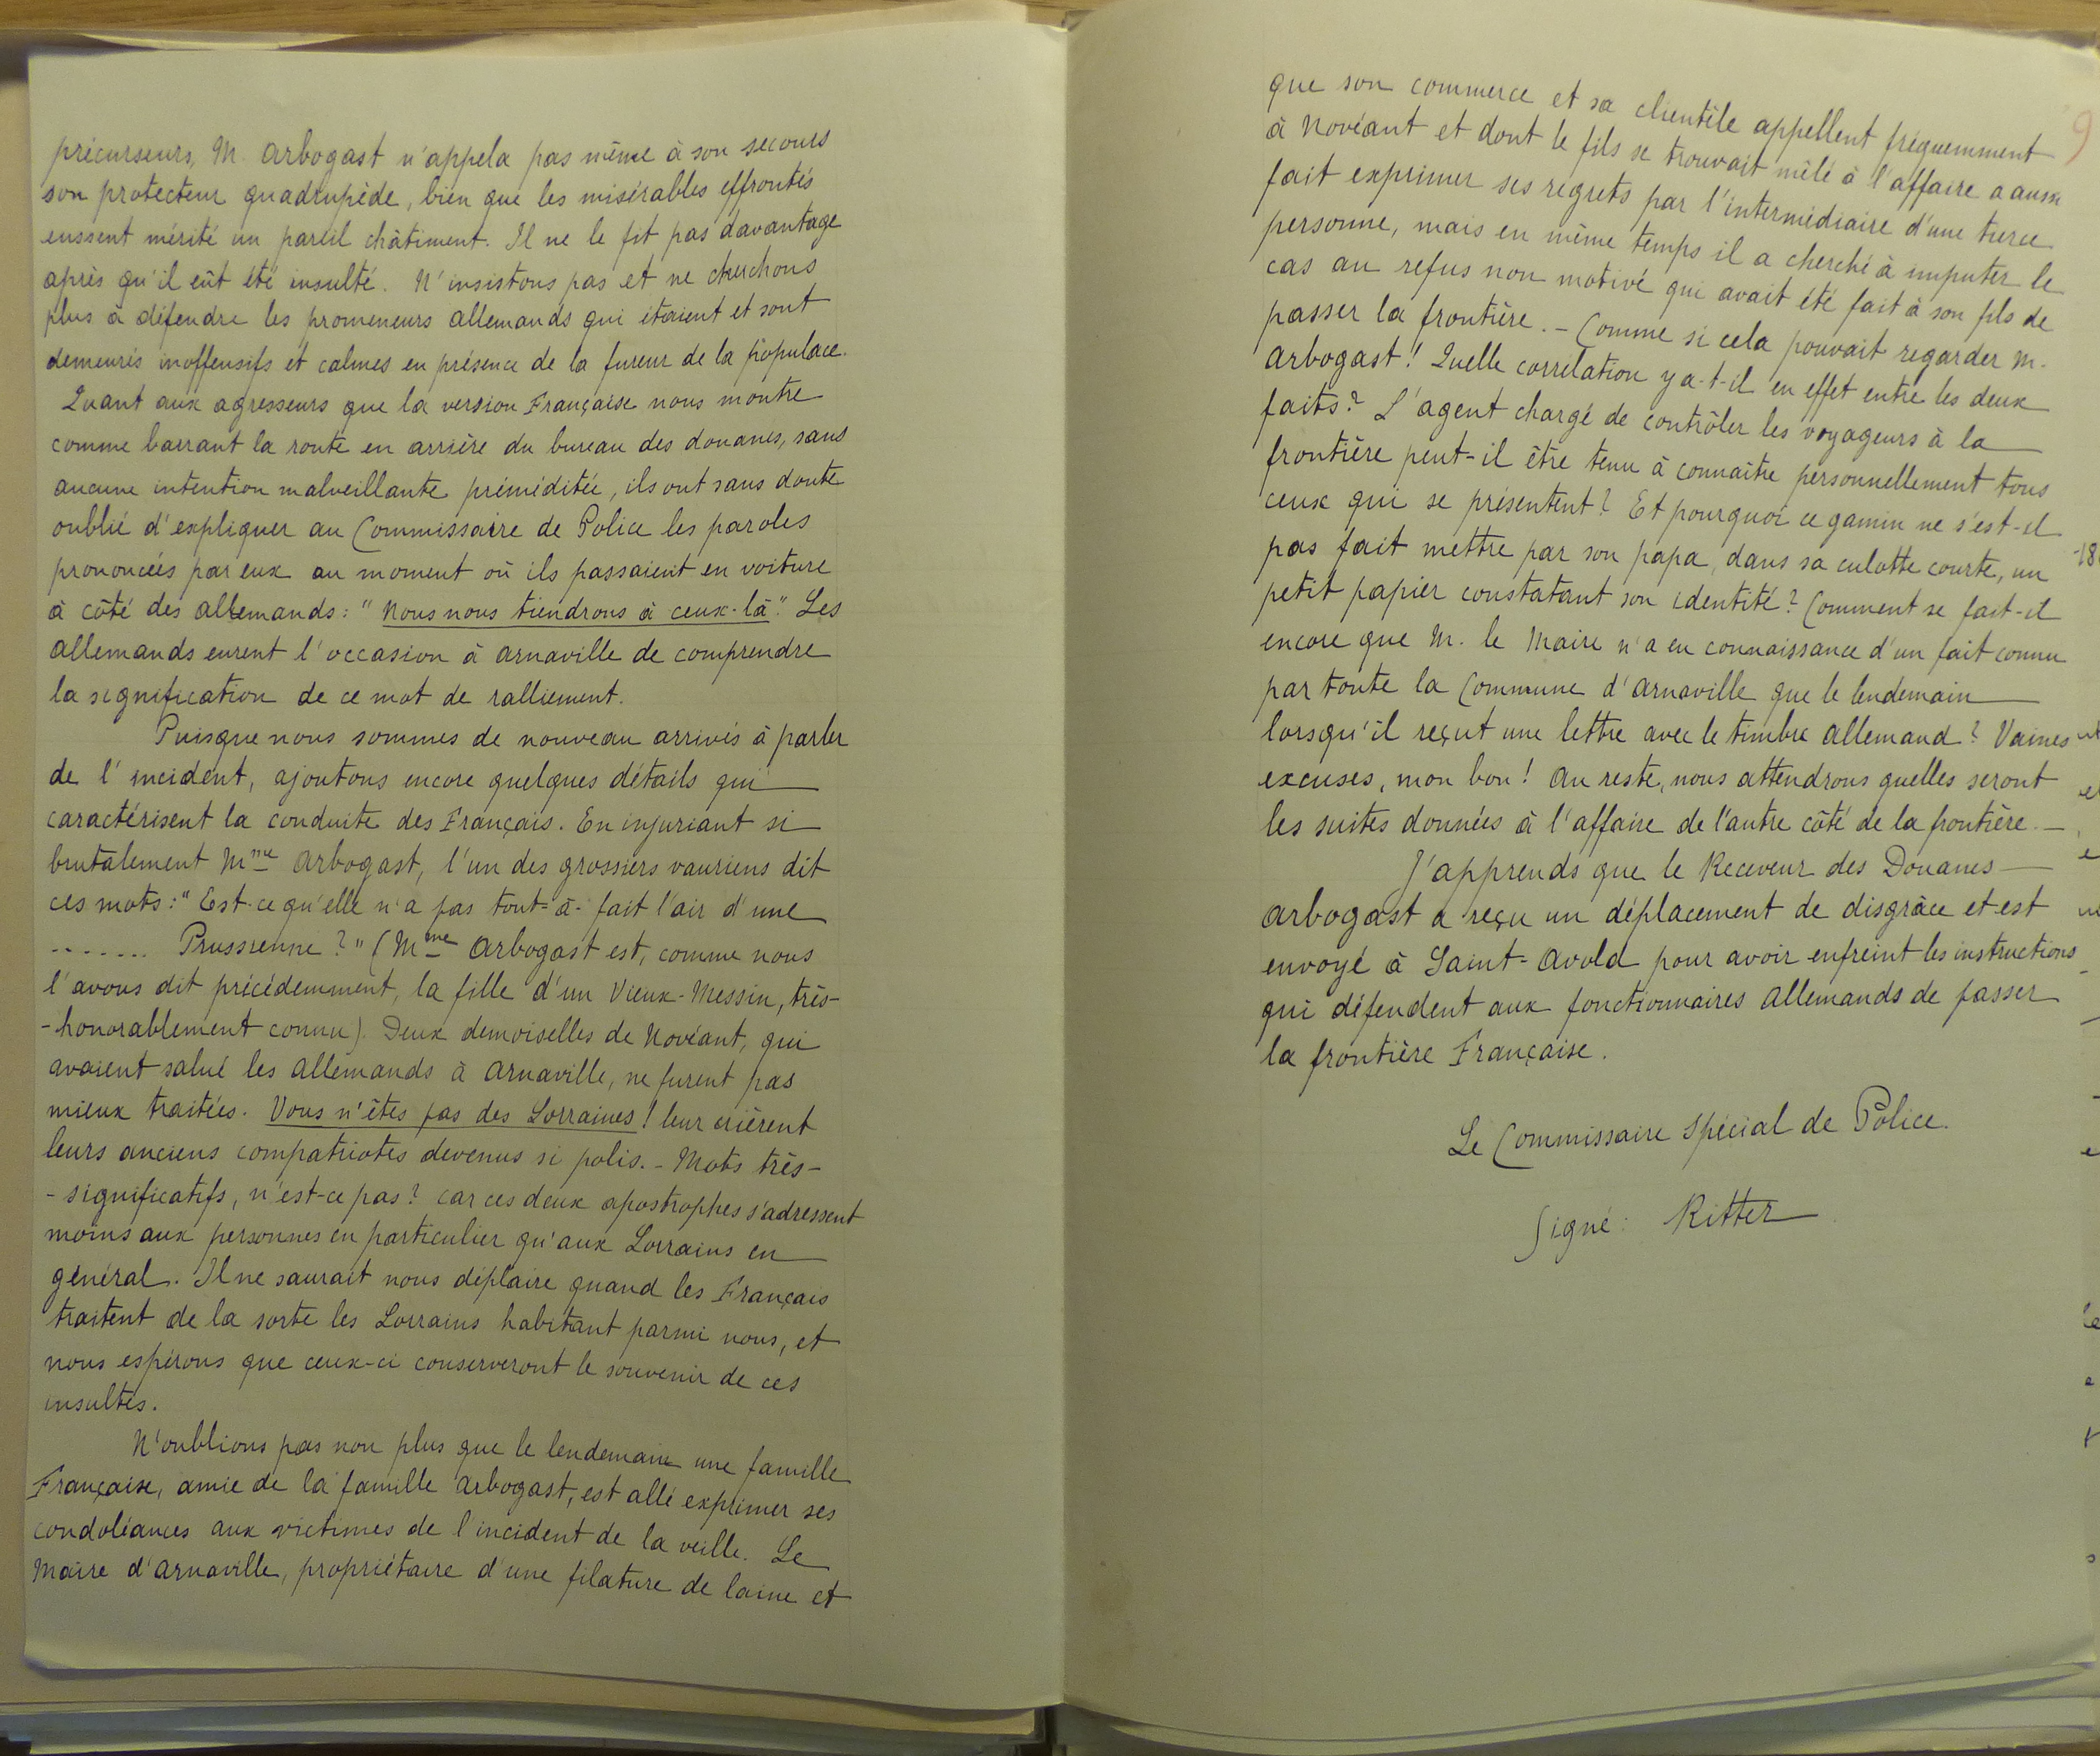 précurseurs, M. Arbogast n'appela pas même à son secours
son protecteur quadrupède, bien que les misérables effrontés
eussent mérité un pareil châtiment. Il ne le fit pas davantage
après qu'il eût été insulté. N'insistons pas et ne cherchons
plus à défendre les promeneurs allemands qui étaient et sont
demeurés inoffensifs et calmes en présence de la fureur de la populace.
Quant aux agresseurs que la version Française nous montre
comme barrant la route en arrière du bureau des douanes, sans
aucune intention malveillante préméditée, ils ont sans doute
oublié d'expliquer au Commissaire de Police les paroles
prononcées par eux au moment où ils passaient en voiture
à côté des allemands : "Nous nous tiendrons à ceux-là". Les
allemands eurent l'occasion à Arnaville de comprendre
la signification de ce mot de ralliement.
Puisque nous sommes de nouveau arrivés à parler
de l'incident, ajoutons encore quelques détails qui
caractérisent la conduite des Français. En injuriant si
brutalement Mme Arbogast, l'un des grossiers vauriens dit
ces mots : "Est-ce qu'elle n'a pas tout-à-fait l'air d'une
....... Prussienne ?" (Mme Arbogast est, comme nous
l'avons dit précédemment, la fille d'un Vieux-Messin, très-
-honorablement connu). Deux demoiselles de Novéant, qui
avaient salué les allemands à Arnaville, ne furent pas
mieux traitées. Vous n'êtes pas des Lorraines ! leur crièrent
leurs anciens compatriotes devenus si polis. - Mots très-
-significatifs, n'est-ce pas ? car ces deux apostrophes s'adressent
moins aux personnes en particulier qu'aux Lorrains en
général. Il ne saurait nous déplaire quand les Français
traitent de la sorte les Lorrains habitant parmi nous, et
nous espérons que ceux-ci conserveront le souvenir de ces
insultes.
N'oublions pas non plus que le lendemain une famille
Française, amie de la famille Arbogast, est allé exprimer ses
condoléances aux victimes de l'incident de la veille. Le
Maire d'Arnaville, propriétaire d'une filature de laine et
9
que son commerce et sa clientèle appellent fréquemment
à Novéant et dont le fils se trouvait mêlé à l'affaire a aussi
fait exprimer ses regrets par l'intermédiaire d'une tierce
personne, mais en même temps il a cherché à imputer le
cas au refus non motivé qui avait été fait à son fils de
passer la frontière. - Comme si cela pouvait regarder M.
Arbogast ! Quelle corrélation y a-t-il en effet entre les deux
faits ? L'agent chargé de contrôler les voyageurs à la
frontière peut-il être tenu à connaître personnellement tous
ceux qui se présentent ? Et pourquoi ce gamin ne s'est-il
pas fait mettre par son papa, dans sa culotte courte, un
petit papier constatant son identité ? Comment se fait-il
encore que M. le Maire n'a eu connaissance d'un fait connu
par toute la Commune d'Arnaville que le lendemain
lorsqu'il reçut une lettre avec le timbre allemand ? Vaines
excuses, mon bon ! Au reste, nous attendrons quelles seront
les suites données à l'affaire de l'autre côté de la frontière. -
J'apprends que le Receveur des Douanes
Arbogast a reçu un déplacement de disgrâce et est
envoyé à Saint-Avold pour avoir enfreint les instructions
qui défendent aux fonctionnaires allemands de passer
la frontière Française.
Le Commissaire Spécial de Police.
Signé : Ritter